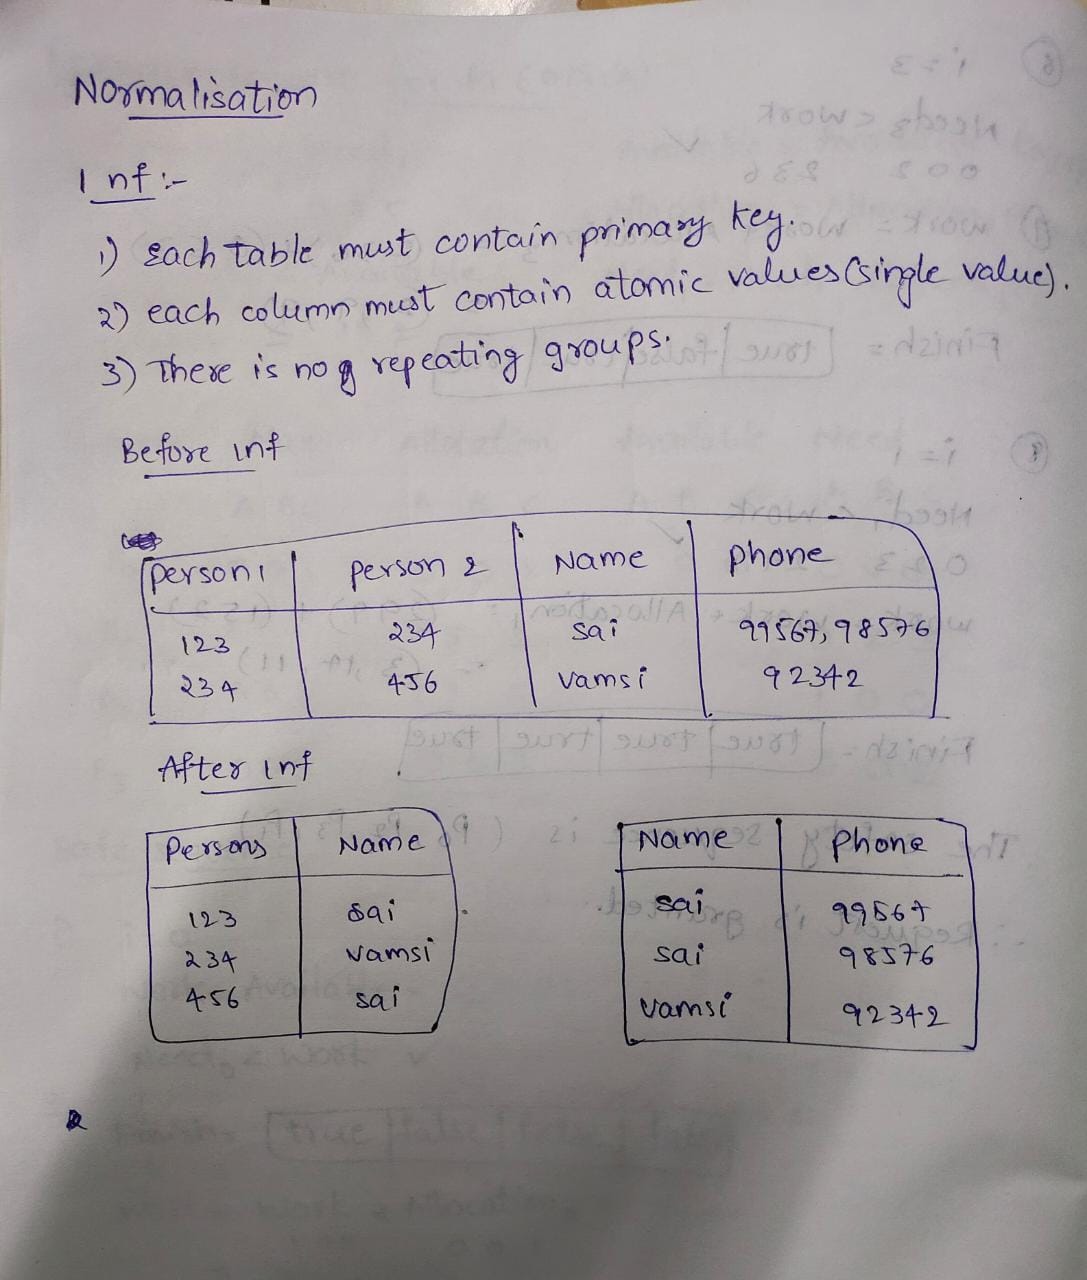 Normalisation
1 nf :-
1) Each table must contain primary key.
2) each column must contain atomic values (single value).
3) There is no repeating groups.
Before 1nf
person1 person 2 Name phone
123 234 sai 99567, 98576
234 456 vamsi 92342
After 1nf
Persons Name
123 sai
234 vamsi
456 sai
Name phone
sai 99567
sai 98576
vamsi 92342